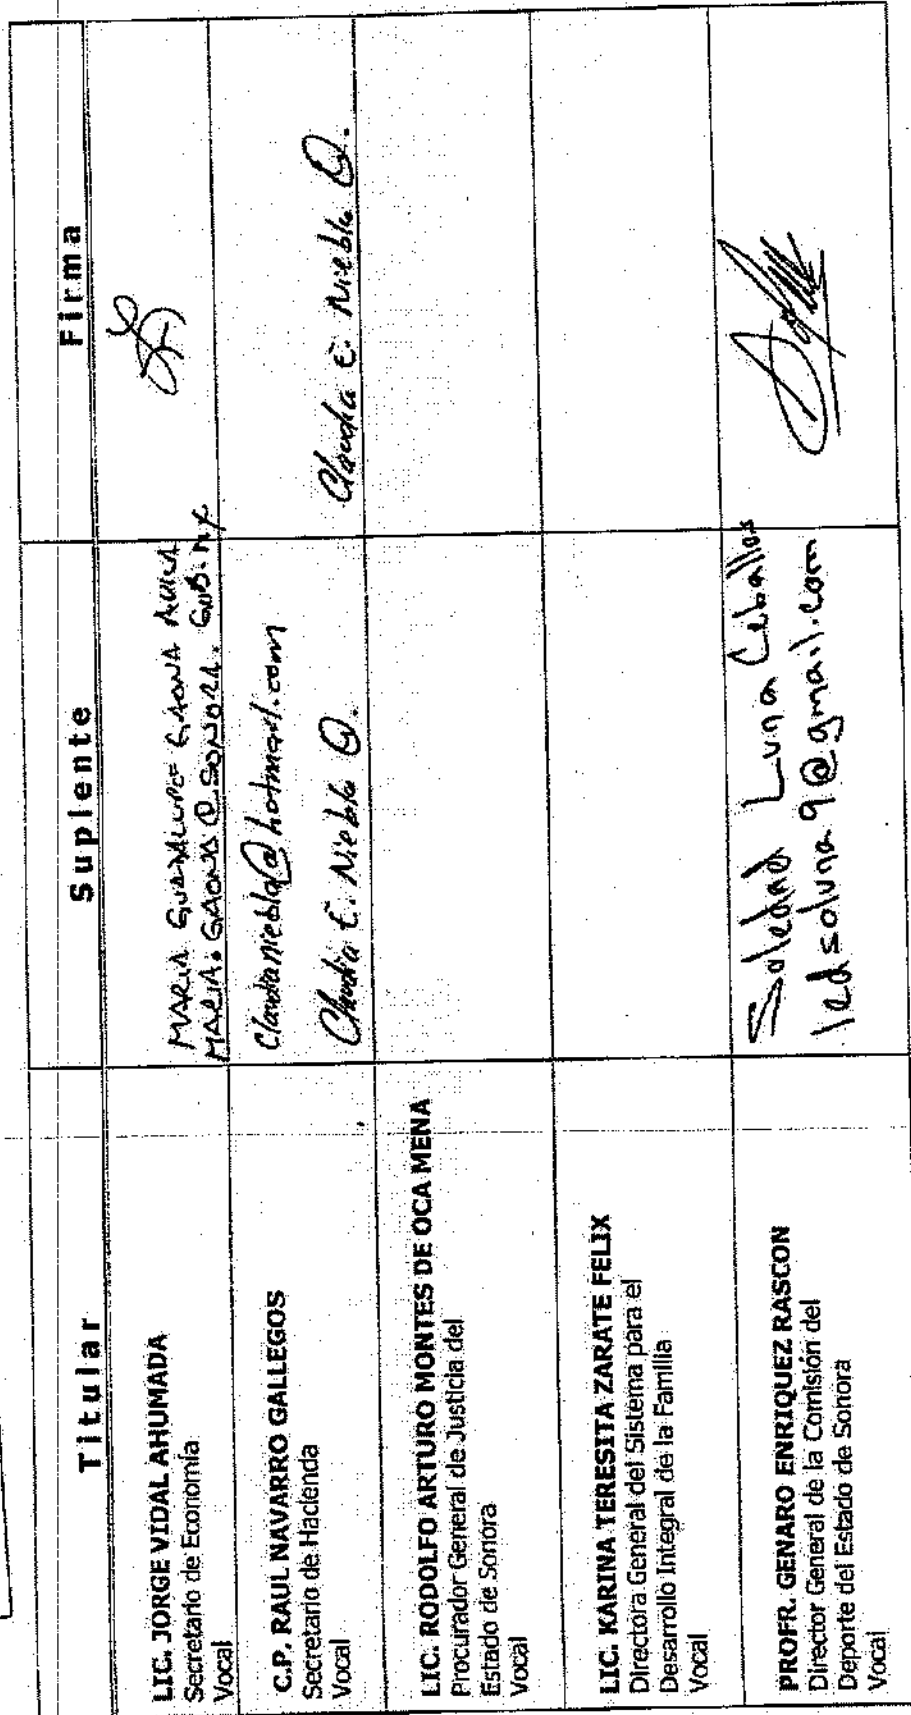 Titular
Suplente
Firma
LIC. JORGE VIDAL AHUMADA
Secretario de Economía
Vocal
MARIA GUADALUPE GAONA AVILA
MARIA.GAONA@SONORA.GOB.MX
C.P. RAUL NAVARRO GALLEGOS
Secretario de Hacienda
Vocal
Claudianiebla@hotmail.com
Claudia E. Niebla Q.
Claudia E. Niebla Q.
LIC. RODOLFO ARTURO MONTES DE OCA MENA
Procurador General de Justicia del
Estado de Sonora
Vocal
LIC. KARINA TERESITA ZARATE FELIX
Directora General del Sistema para el
Desarrollo Integral de la Familia
Vocal
PROFR. GENARO ENRIQUEZ RASCON
Director General de la Comisión del
Deporte del Estado de Sonora
Vocal
Soledad Luna Ceballos
ledsoluna9@gmail.com